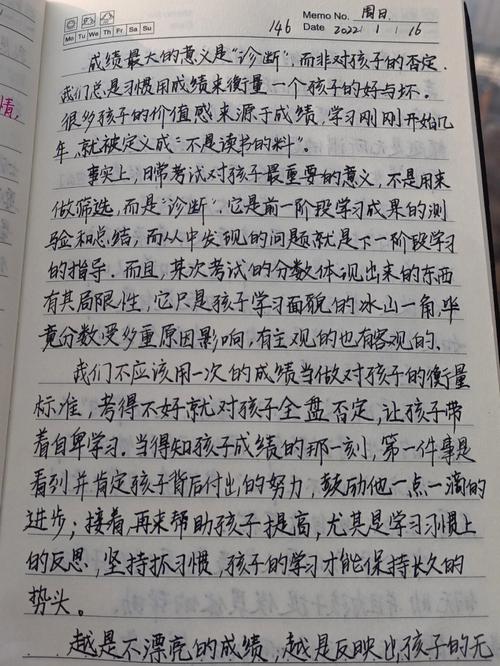 Mo Tu We Th Fr Sa Su
146
Memo No. 周日
Date 2022 / 1 / 16
成绩最大的意义是"诊断"而非对孩子的否定.
我们总是习惯用成绩来衡量一个孩子的好与坏.
很多孩子的价值感来源于成绩,学习刚刚开始几
年,就被定义成"不是读书的料".
事实上,日常考试对孩子最重要的意义,不是用来
做筛选,而是"诊断".它是前一阶段学习成果的测
验和总结,而从中发现的问题就是下一阶段学习
的指导.而且,某次考试的分数体现出来的东西
有其局限性,它只是孩子学习面貌的冰山一角,毕
竟分数受多重原因影响,有主观的也有客观的、
我们不应该用一次的成绩当做对孩子的衡量
标准,考得不好就对孩子全盘否定,让孩子带
着自卑学习.当得知孩子成绩的那一刻,第一件事是
看到并肯定孩子背后付出的努力,鼓励他一点一滴的
进步;接着,再来帮助孩子提高,尤其是学习习惯上
的反思,坚持抓习惯,孩子的学习才能保持长久的
势头。
越是不漂亮的成绩,越是反映出孩子的无
情,